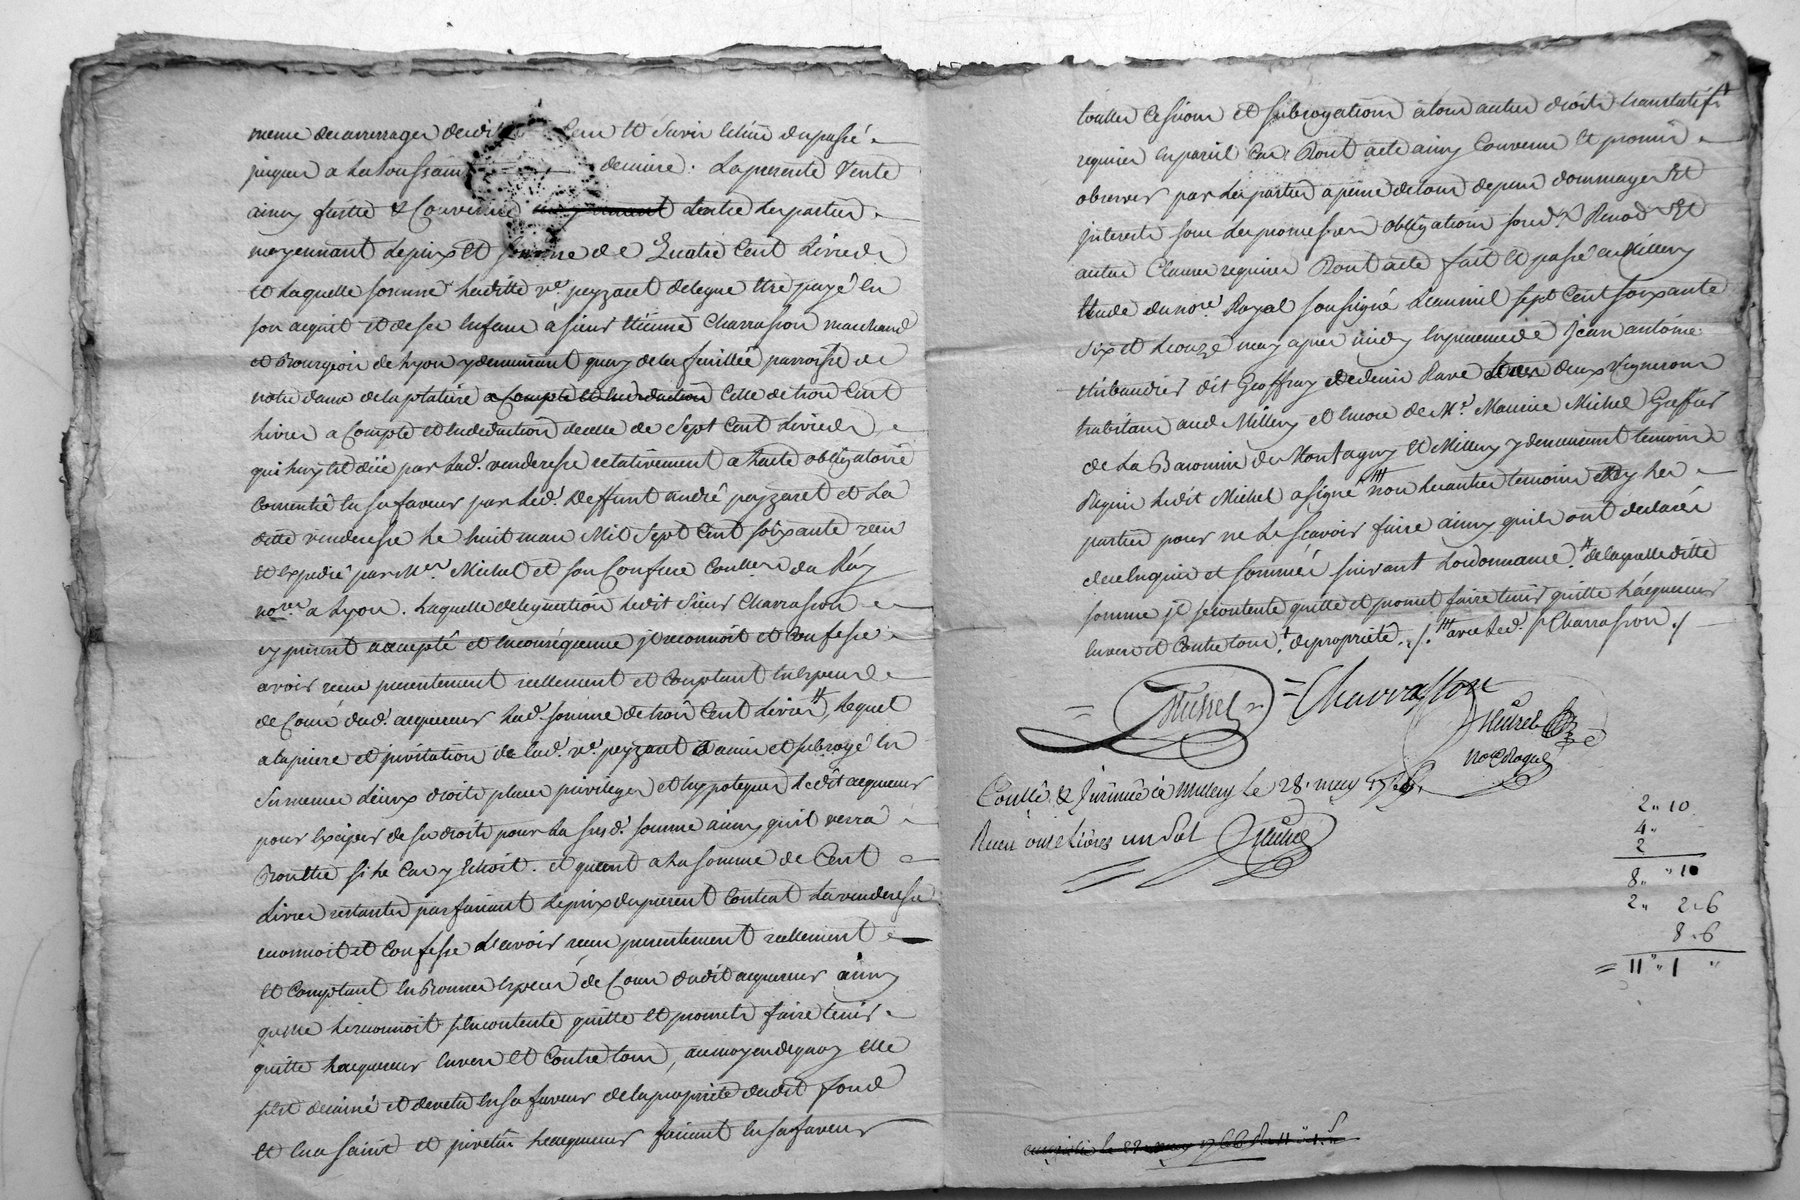 meme des arrerages dudit Cens et Servis le tiers du passé
jusques a la toussaint derniere. La presente Vente
ainsy faitte & Convenüe dentre les parties
moyennant le prix et somme de Quatre Cent Livres
et laquelle somme laditte ve. peyzaret delegue etre payé en
son acquit et de ses enfans a sieur Etienne Charrasson marchand
et Bourgeois de Lyon y demeurant quay de la feuillée parroisse de
notre dame de la platiere a Compte et en deduction Celle de trois Cent
Livres a Compte et en deduction de celle de Sept Cent Livres
qui luy est düe par lad. venderesse relativement a l'acte obligatoire
Consentie en sa faveur par led. deffunt andré peyzaret et la
ditte venderesse le huit mars Mil Sept Cent soixante
et expedié par Me. Michel et son Confrere Coner. du Roy
nores. a Lyon. Laquelle delegation ledit Sieur Charrasson
cy present accepté et en consequence il reconnoit et Confesse
avoir reçu presentement reellement et Comptant en especes
de Cours dud. acquereur lad. somme de trois Cent Livres, lequel
a la priere et invitation de lad. ve. peyzaret a mis et subrogé en
ses memes lieux droits places privileges et hypoteques ledit acquereur
pour exciper de ses droits pour la susd. somme ainsy qu'il verra
Bon etre si le Cas y Echoit. et quant a la somme de Cent
Livres restantes parfaisant le prix du present Contrat La venderesse
reconnoit et Confesse L'avoir reçu presentement reellement
et Comptant en Bonnes especes de Cours dudit acquereur ainsy
qu'elle le reconnoit s'en contente quitte et promet faire tenir
quitte l'acquereur envers et Contre tous, au moyen de quoy elle
s'est demise et devetue en sa faveur de la propriété dudit fond
et en a saisie et investü l'acquereur faisant en sa faveur
touttes Cessions et subrogations a tous autres droits translatifs
requises en pareil Cas. Dont acte ainsy Convenu et promis
observer par les parties a peine de tous depens dommages Et
Interests sous les promesses obligations soumd. Renond. Et
autres Clauses requises Dont acte fait et passé a Millery
Etude du nore. Royal soussigné L'an mil sept Cent soixante
six et le onze may apres midy en presence de Jean antoine
thibaudier dit Geoffray et de denis Rave deux vignerons
habitans aud. Millery et encore de Me. Maurice Michel Greffier
de La Baronnie de Montagny et Millery y demeurant temoins
Requis ledit Michel a signé non les autres temoins ny les
parties pour ne le sçavoir faire ainsy qu'ils ont declarés
de ce enquis et sommés suivant L'ordonnance. de laquelle ditte
somme il se contente quitte et promet faire tenir quitte l'acquereur
envers et Contre tous. de propriété. avec led. sr. Charrasson.
Michel Charrasson
Michel
No. Royal
Conllé & Insinué a millery Le 28. may 1766.
Recu onze livres un Sol Michel
2 " 10
4 "
2
8 " " 10
2 " 2 " 6
8 " 6
= 11 " 1 "